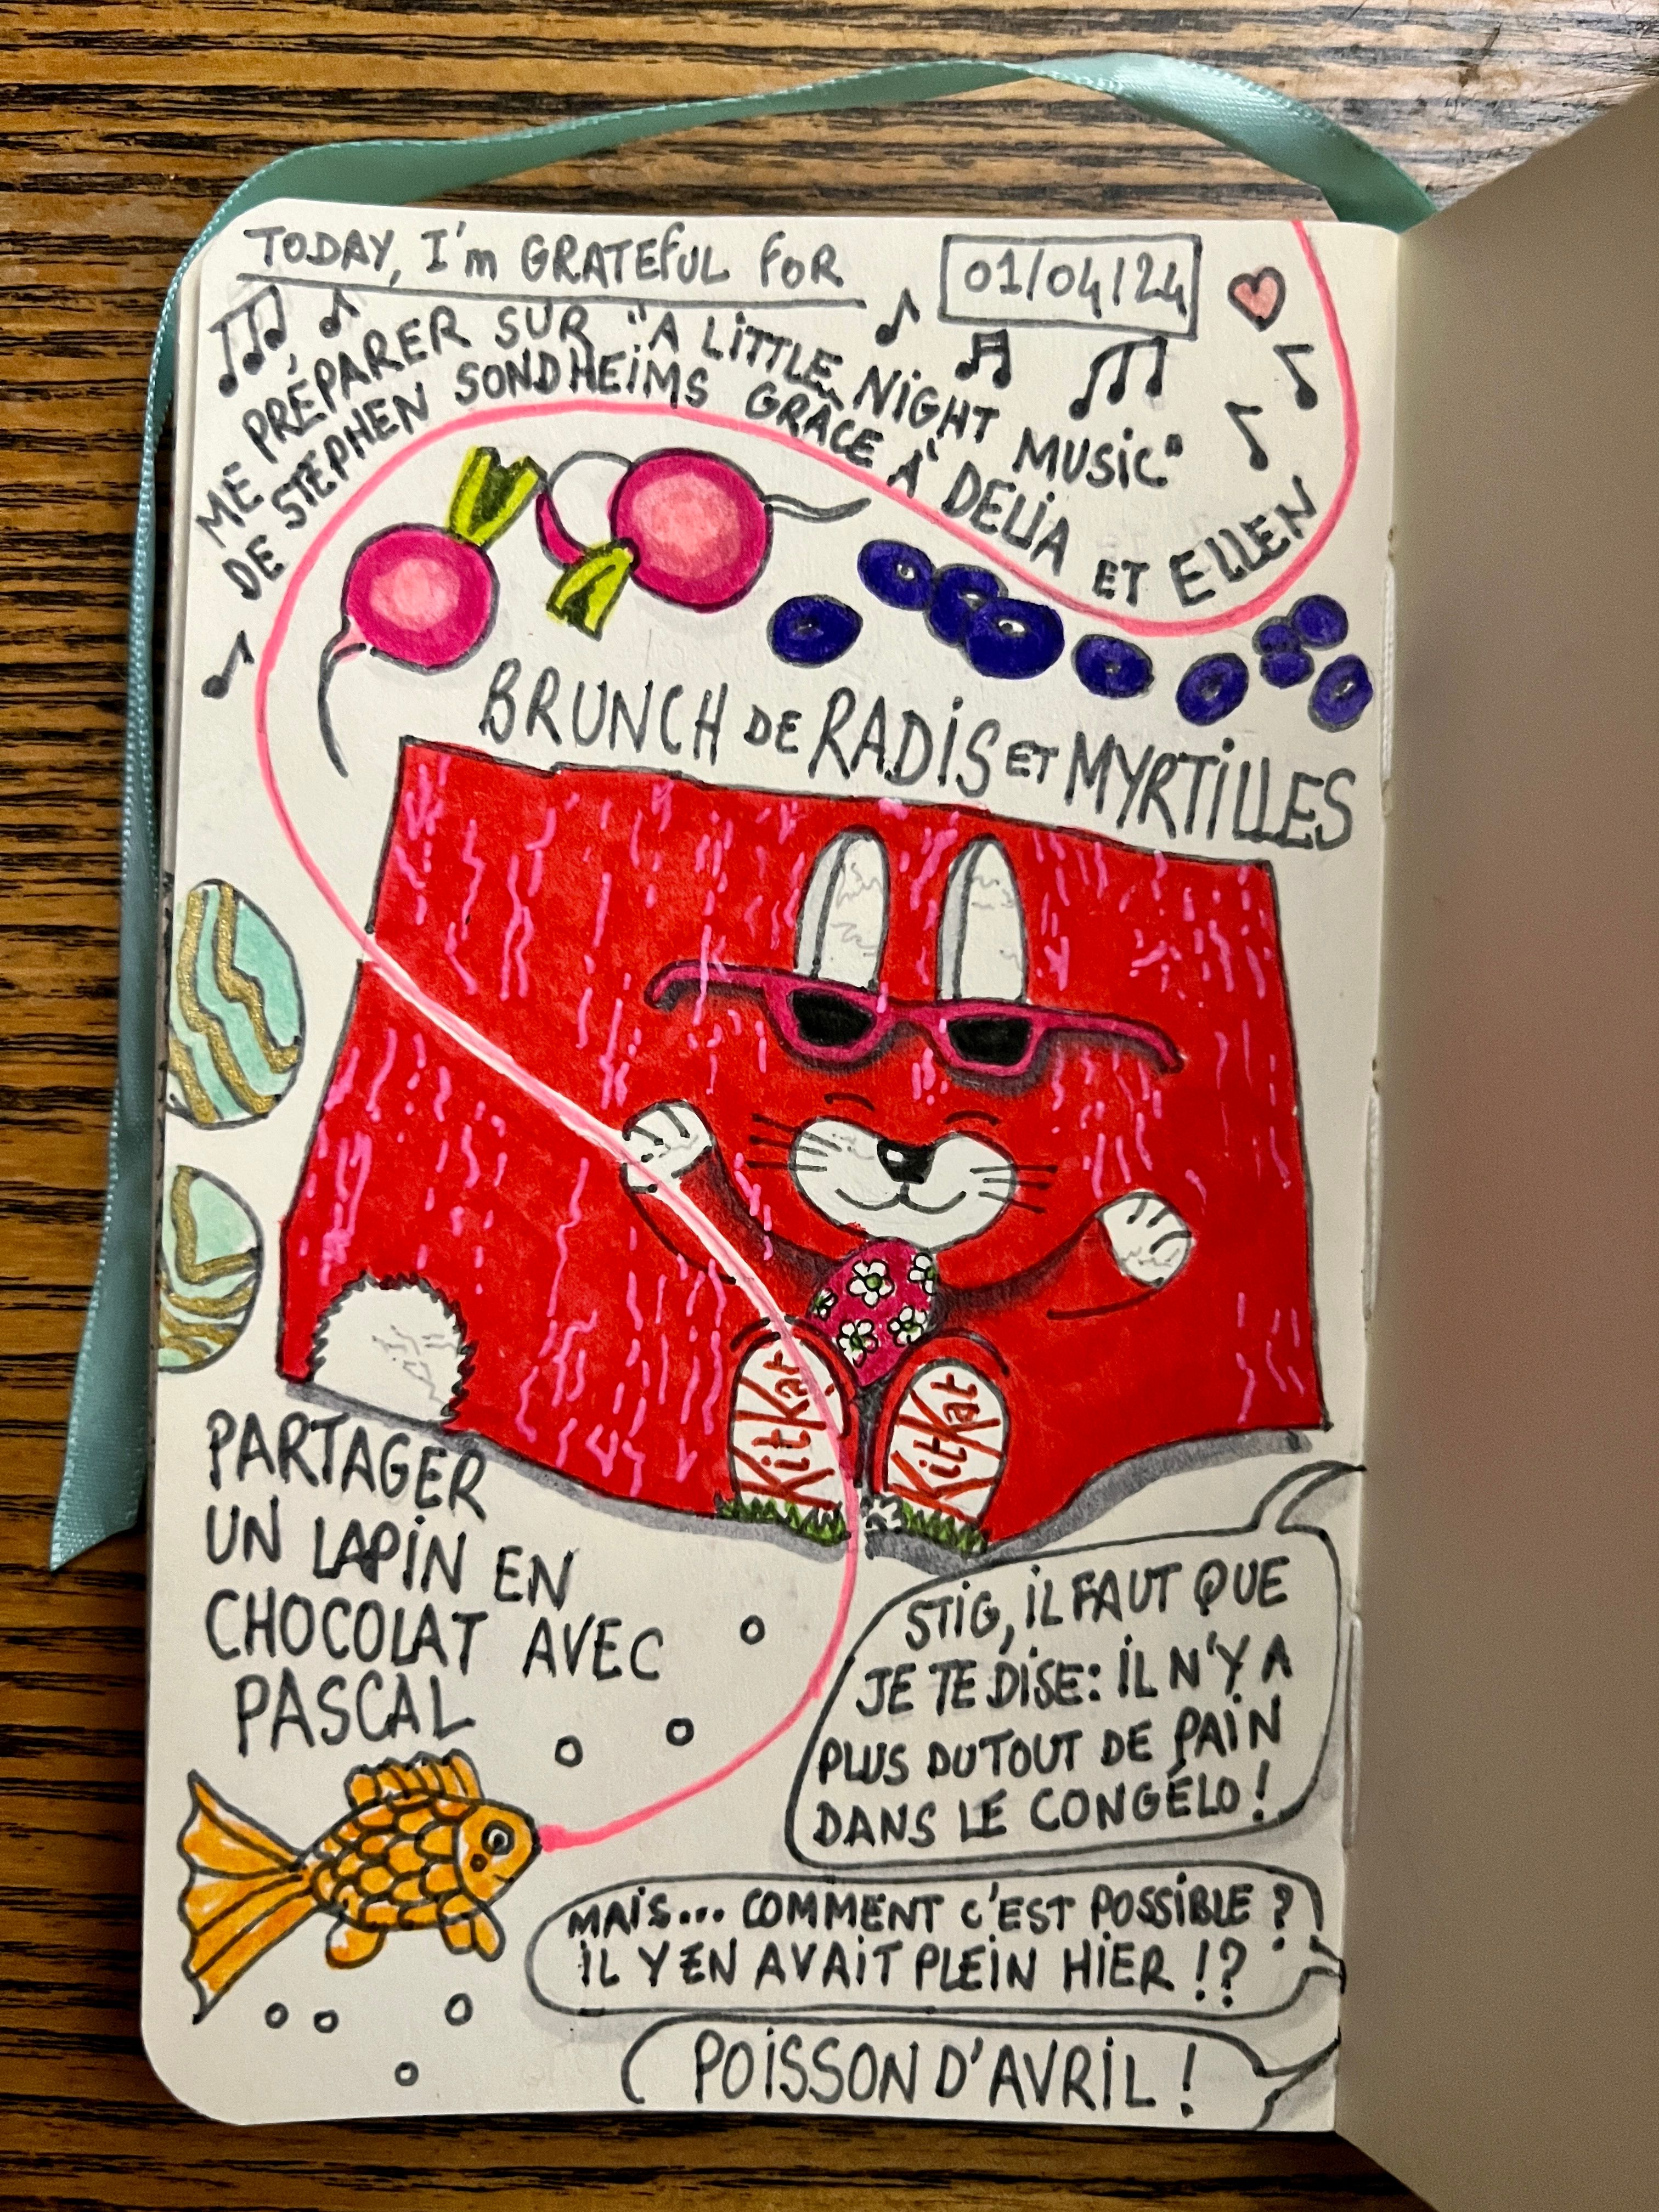 TODAY, I'm GRATEFUL FOR
01/04/24
ME PRÉPARER SUR "A LITTLE NIGHT MUSIC"
DE STEPHEN SONDHEIMS GRÂCE À DELIA ET ELLEN
BRUNCH DE RADIS ET MYRTILLES
KitKat
KitKat
PARTAGER
UN LAPIN EN
CHOCOLAT AVEC
PASCAL
STIG, IL FAUT QUE
JE TE DISE: IL N'Y A
PLUS DU TOUT DE PAIN
DANS LE CONGÉLO!
MAIS... COMMENT C'EST POSSIBLE?
IL Y EN AVAIT PLEIN HIER!?
POISSON D'AVRIL!